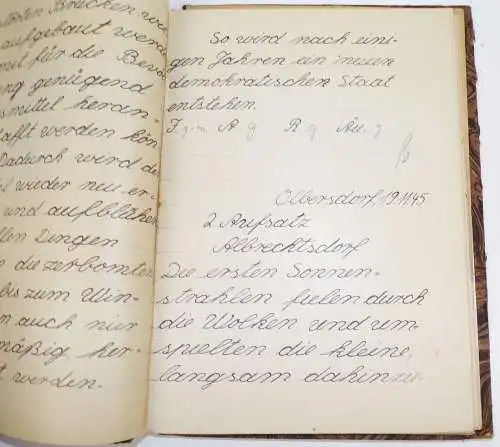 törten Brücken wie
aufgebaut werde
mel für die Bevö
ng genügend
smittel heran-
afft werden kön
Dadurch wird d
l wieder neu er
und aufblühen
llen Dingen
n die zerbomten
bis zum Win-
n auch nur
mäßig her-
t werden.
So wird nach eini-
gen Jahren ein neuer
demokratischer Staat
entstehen.
F. g-m A. g R. g Au. g
Olbersdorf, 19.11.45
2. Aufsatz
Albrechtsdorf
Die ersten Sonnen-
strahlen fielen durch
die Wolken und um-
spielten die kleine,
langsam dahinzie